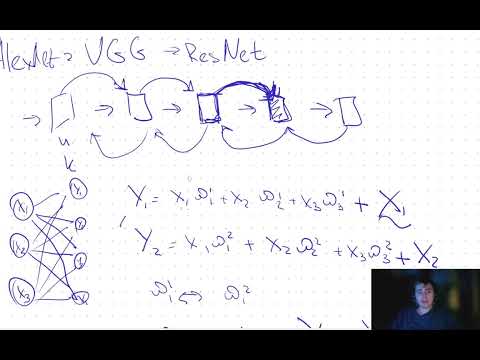 AlexNet → VGG → ResNet
→ → → → →
u
k
X₁ Y₁ Y₁ = X₁ω₁¹ + X₂ω₂¹ + X₃ω₃¹ + X₁
X₂ Y₂ = X₁ω₁² + X₂ω₂² + X₃ω₃² + X₂
X₃ ω₁¹ ↔ ω₁²